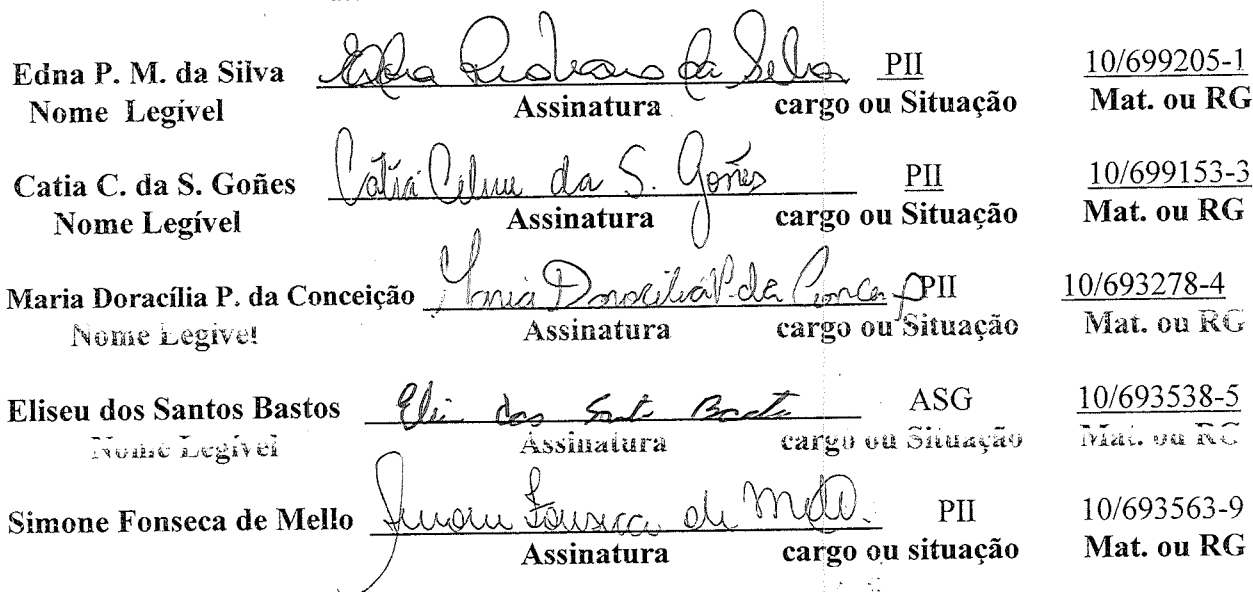 Edna P. M. da Silva Edna da Silva PII 10/699205-1
Nome Legível Assinatura cargo ou Situação Mat. ou RG
Catia C. da S. Goñes Catia Celine da S. Goñes PII 10/699153-3
Nome Legível Assinatura cargo ou Situação Mat. ou RG
Maria Doracília P. da Conceição Maria Doracilia P. da PII 10/693278-4
Nome Legível Assinatura cargo ou Situação Mat. ou RG
Eliseu dos Santos Bastos dos ASG 10/693538-5
Nome Legível Assinatura cargo ou Situação Mat. ou RG
Simone Fonseca de Mello Simone Fonseca de Mello. PII 10/693563-9
Assinatura cargo ou situação Mat. ou RG